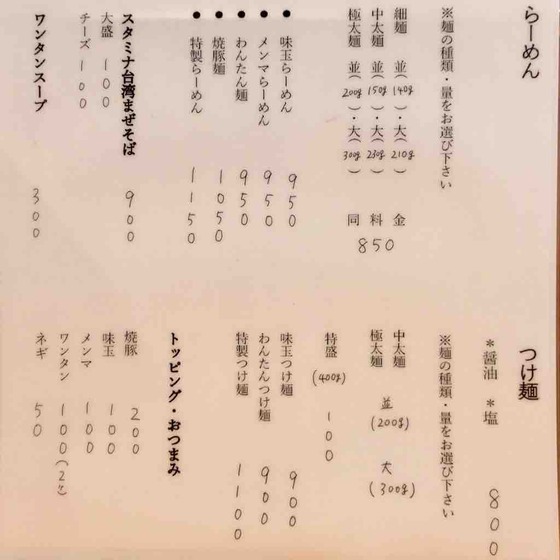 らーめん
※麺の種類・量をお選び下さい
細麺 並(140g)・大(210g) 金
中太麺 並(150g)・大(230g) 料
極太麺 並(200g)・大(300g) 同
850
● 味玉らーめん 950
● メンマらーめん 950
● わんたん麺 950
● 焼豚麺 1050
● 特製らーめん 1150
スタミナ台湾まぜそば 900
大盛 100
チーズ 100
ワンタンスープ 300
つけ麺
*醤油 *塩 800
※麺の種類・量をお選び下さい
中太麺 並 大
極太麺 (200g) (300g)
特盛 (400g) 100
味玉つけ麺 900
わんたんつけ麺 900
特製つけ麺 1100
トッピング・おつまみ
焼豚 200
味玉 100
メンマ 100
ワンタン 100(2ケ)
ネギ 50